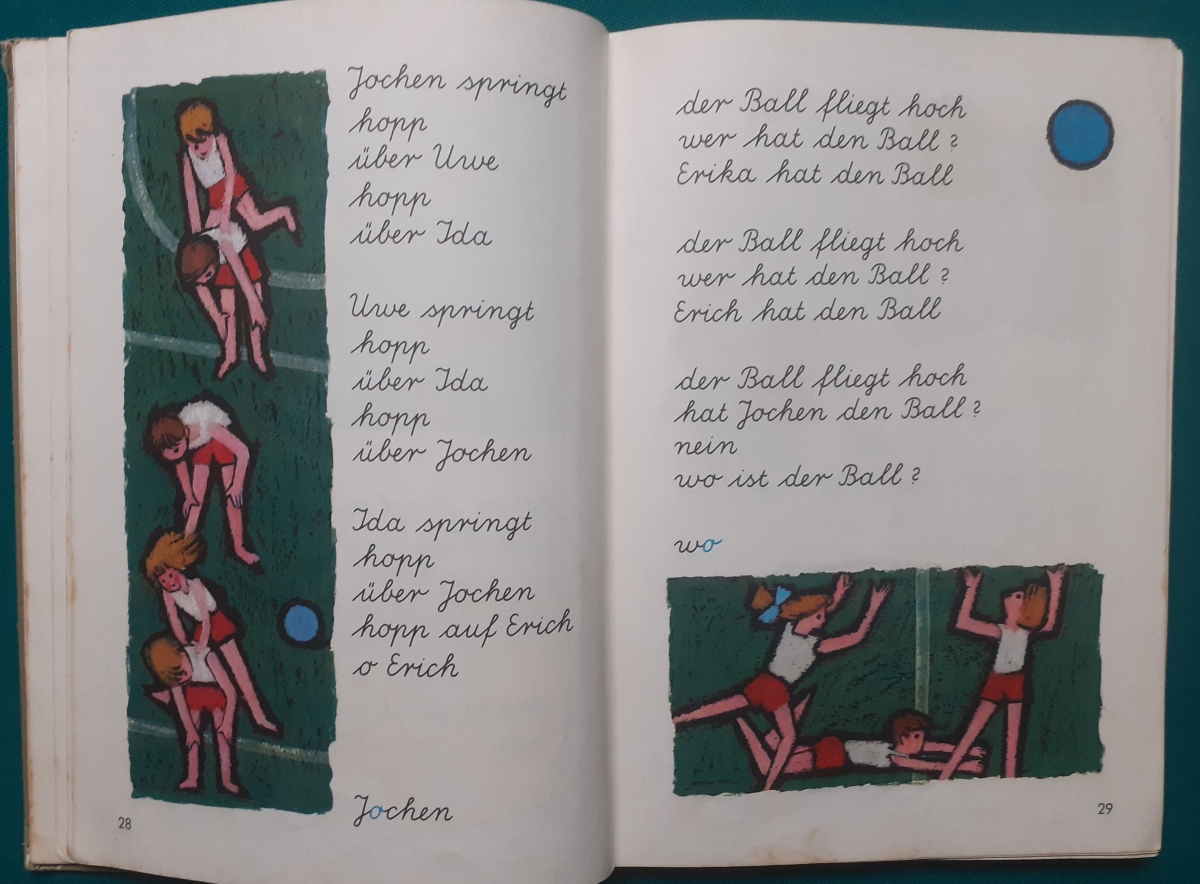 Jochen springt
hopp
über Uwe
hopp
über Ida
Uwe springt
hopp
über Ida
hopp
über Jochen
Ida springt
hopp
über Jochen
hopp auf Erich
o Erich
Jochen
28
der Ball fliegt hoch
wer hat den Ball?
Erika hat den Ball
der Ball fliegt hoch
wer hat den Ball?
Erich hat den Ball
der Ball fliegt hoch
hat Jochen den Ball?
nein
wo ist der Ball?
wo
29